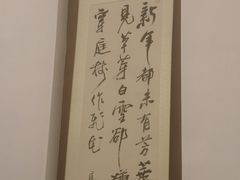 新年都未有芳華
見草芽白雪卻嫌
穿庭樹作飛花